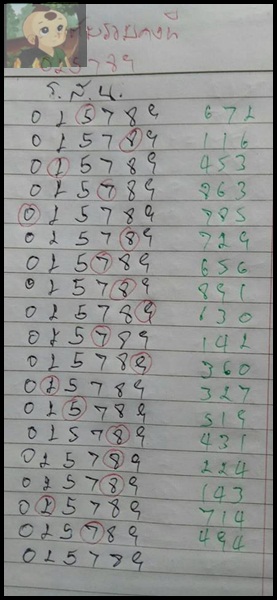 015789
0 1 5 7 8 9 671
0 1 5 7 8 9 116
0 1 5 7 8 9 453
0 1 5 7 8 9 863
0 1 5 7 8 9 785
0 1 5 7 8 9 729
0 1 5 7 8 9 656
0 1 5 7 8 9 891
0 1 5 7 8 9 630
0 1 5 7 8 9 142
0 1 5 7 8 9 360
0 1 5 7 8 9 327
0 1 5 7 8 9 519
0 1 5 7 8 9 431
0 1 5 7 8 9 224
0 1 5 7 8 9 143
0 1 5 7 8 9 714
0 1 5 7 8 9 494
0 1 5 7 8 9